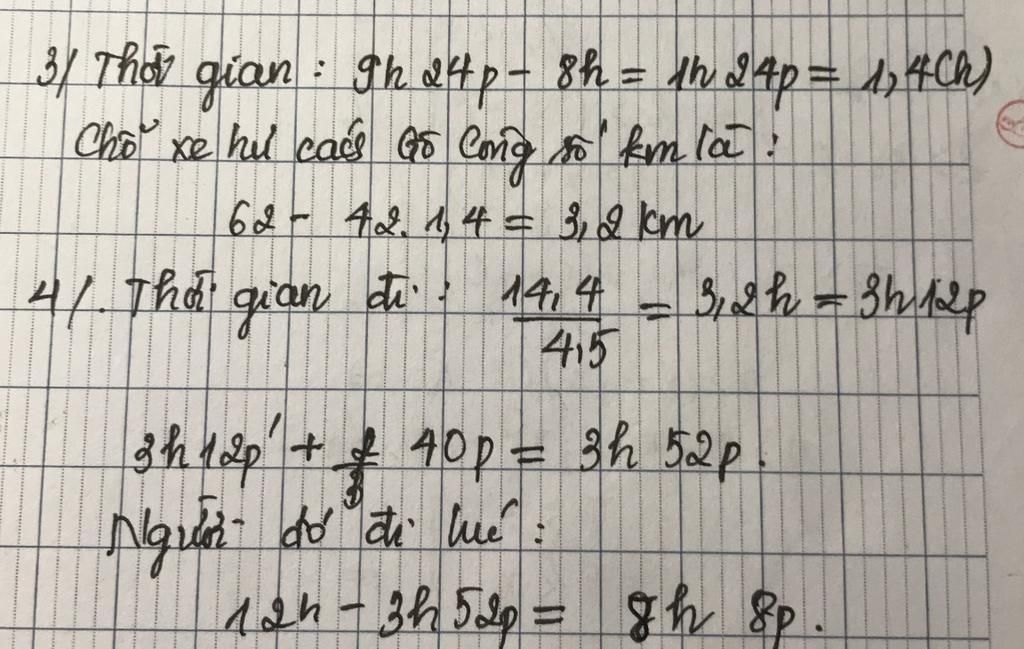 3/ Thời gian : 9h 24p - 8h = 1h 24p = 1,4(h)
Chỗ xe hư cách Gò Công số km là :
62 - 42. 1,4 = 3,2 km
4/. Thời gian đi : 14,4 / 4,5 = 3,2h = 3h12p
3h12p' + 40p = 3h 52p.
Người đó đi lúc :
12h - 3h52p = 8h 8p.